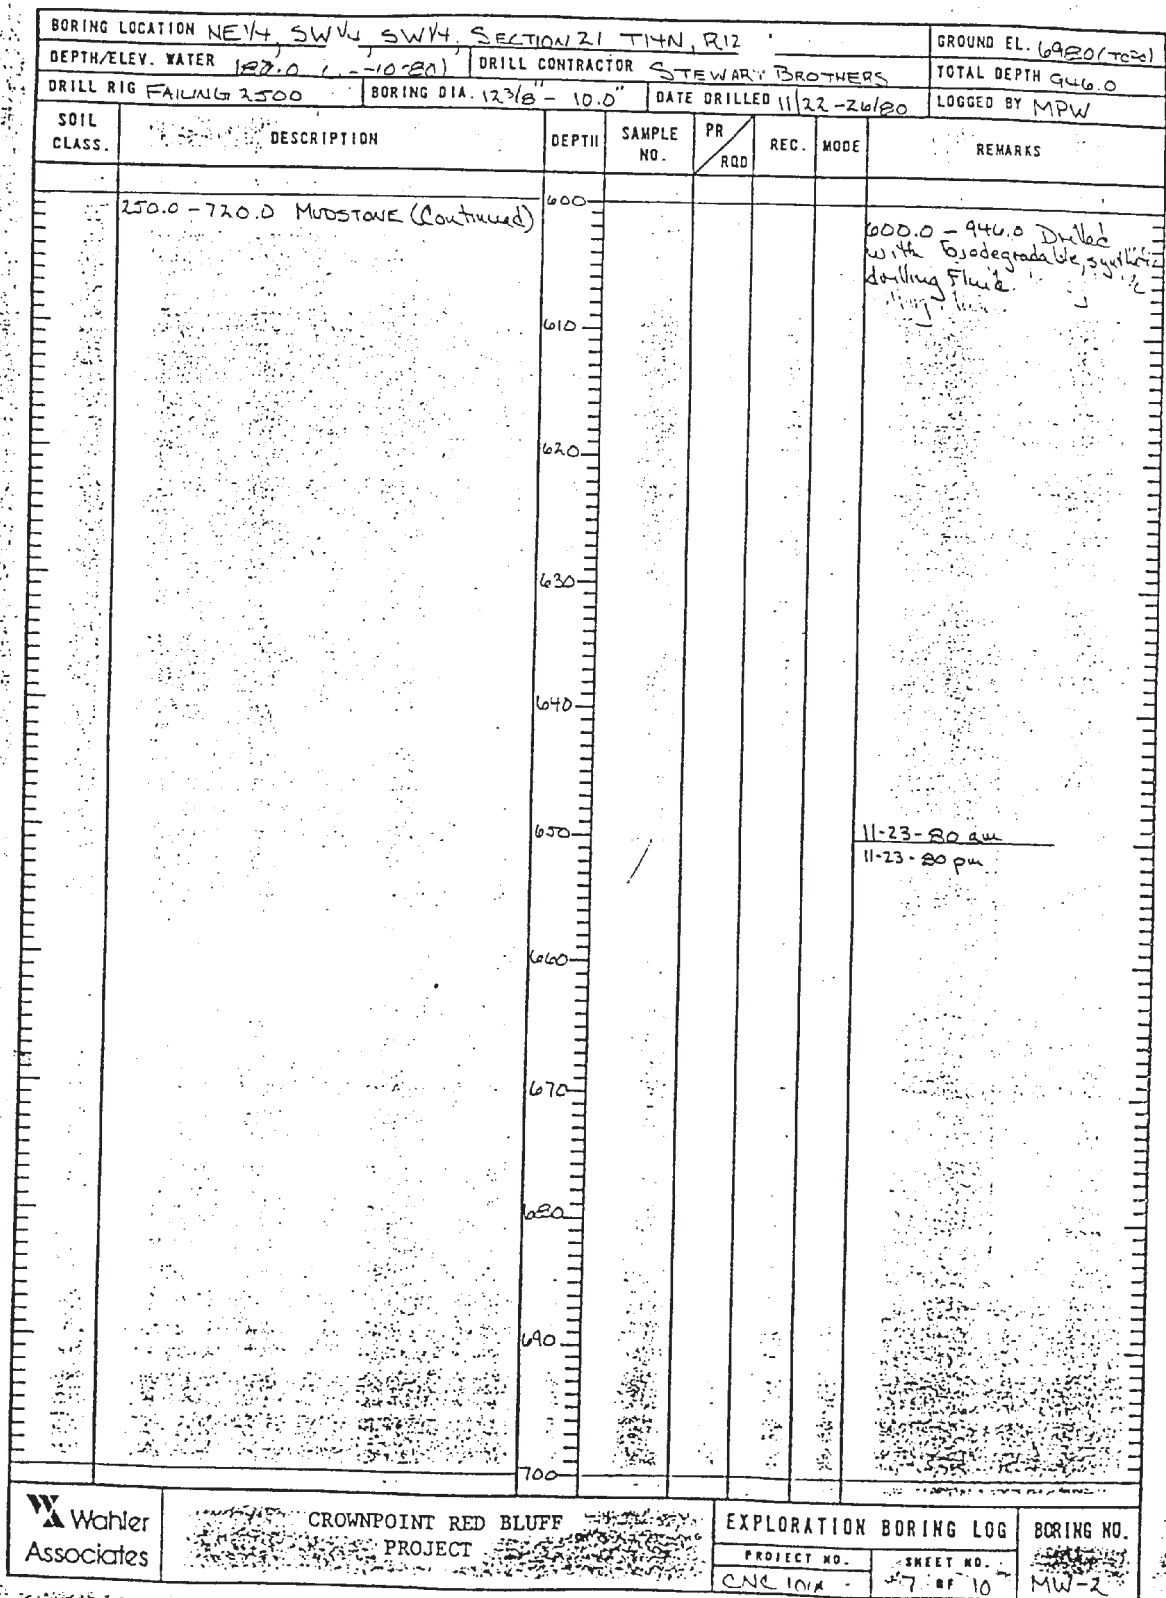 BORING LOCATION NE 1/4, SW 1/4, SW 1/4, SECTION 21 T14N, R12
GROUND EL. 6980
DEPTH/ELEV. WATER DRILL CONTRACTOR STEWART BROTHERS
TOTAL DEPTH 946.0
DRILL RIG FAILING 2500 BORING DIA. 12 3/8" - 10.0" DATE DRILLED 11/22-26/80 LOGGED BY MPW
SOIL CLASS. DESCRIPTION DEPTH SAMPLE NO. PR/RQD REC. MODE REMARKS
250.0 - 720.0 MUDSTONE (Continued)
600
600.0 - 946.0 Drilled
with biodegradable, synthetic
drilling Fluid.
610
620
630
640
650
11-23-80 am
11-23-80 pm
660
670
680
690
700
Wahler
Associates
CROWNPOINT RED BLUFF
PROJECT
EXPLORATION BORING LOG
PROJECT NO.
CNC
SHEET NO.
7 OF 10
BORING NO.
MW-2